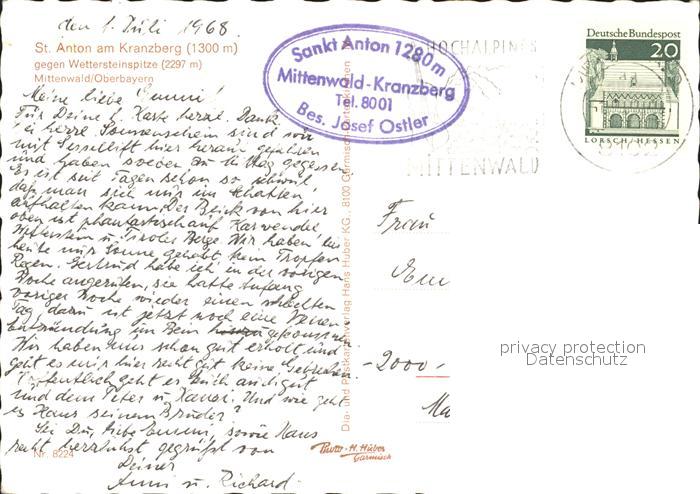 den 1. Juli 1968.
St. Anton am Kranzberg (1300 m)
gegen Wettersteinspitze (2297 m)
Mittenwald/Oberbayern
Sankt Anton 1280 m
Mittenwald-Kranzberg
Tel. 8001
Bes. Josef Ostler
HOCHALPINES
MITTENWALD
Deutsche Bundespost
20
LORSCH/HESSEN
Meine liebe Emmi!
Für Deine l. Karte herzl. Dank.
herrl. Sonnenschein sind wir
mit Sessellift hier herauf gefahren
und haben soeben zu Mittag gegessen.
Es ist seit Tagen schon so schwül,
daß man sich nur im Schatten
aufhalten kann. Der Blick von hier
oben ist phantastisch auf Karwendel,
Wetterstein u. Tiroler Berge. Wir haben bis
heute nur Sonne gehabt, kein Tropfen
Regen. Gertrud habe ich in der vorigen
Woche angerufen, sie hatte Anfang
voriger Woche wieder einen schlechten
Tag, dazu ist jetzt noch eine Venen
entzündung im Bein gekommen.
Wir haben uns schon gut erholt und
geht es mir hier recht gut, keine Beschwerden.
Hoffentlich geht es Euch auch gut
und dem Peter u. Xaveri. Und wie geht
es Hans seinem Bruder?
Sei Du, liebe Emmi, sowie Hans
recht herzlichst gegrüßt von
Deiner
Anni u. Richard.
Nr. 8224
Dia- und Postkartenverlag Hans Huber KG., 8100 Garmisch-Partenkirchen
Photo-H. Huber
Garmisch
Frau
Em
-2000-
Ha
privacy protection
Datenschutz